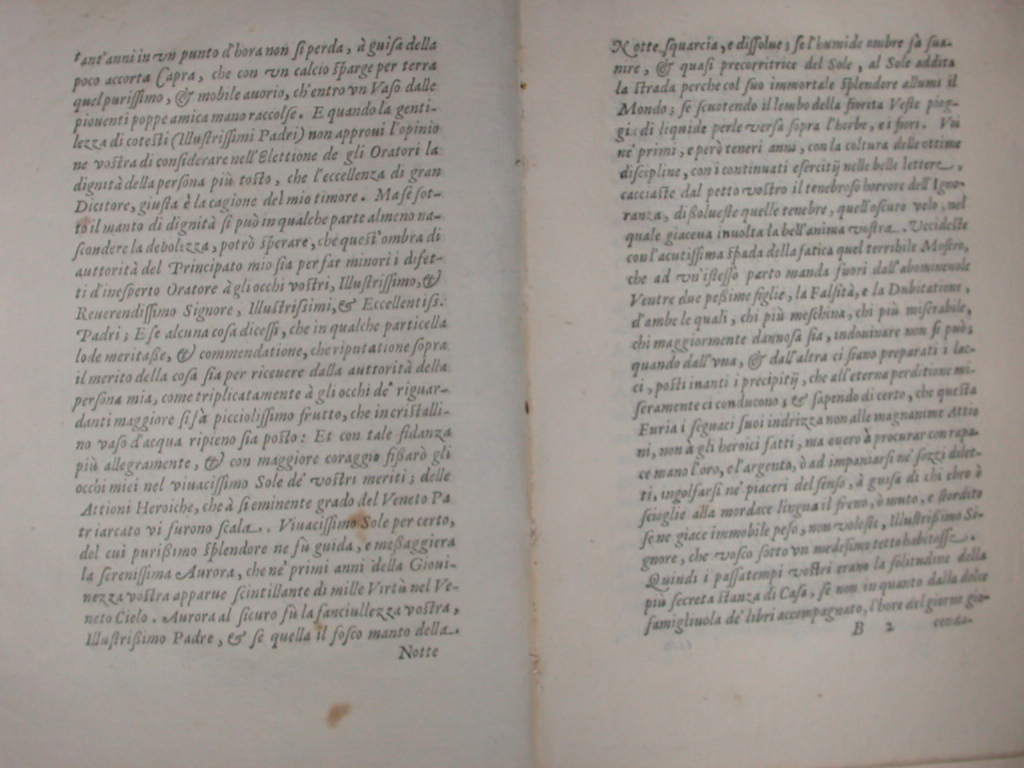 tant'anni in vn punto d'hora non si perda, à guisa della
poco accorta Capra, che con vn calcio sparge per terra
quel purissimo, & mobile auorio, ch'entro vn Vaso dalle
piouenti poppe amica mano raccolse. E quando la genti-
lezza di cotesti (Illustrissimi Padri) non approui l'opinio
ne vostra di considerare nell'Elettione de gli Oratori la
dignità della persona più tosto, che l'eccellenza di gran
Dicitore, giusta è la cagione del mio timore. Ma se sot-
to il manto di dignità si può in qualche parte almeno na-
scondere la debolizza, potrò sperare, che quest'ombra di
auttorità del Principato mio sia per far minori i difet-
ti d'inesperto Oratore à gli occhi vostri, Illustrissimo, &
Reuerendissimo Signore, Illustrissimi, & Eccellentiss.
Padri; E se alcuna cosa dicessi, che in qualche particella
lode meritasse, & commendatione, che riputatione sopra
il merito della cosa sia per riceuere dalla auttorità della
persona mia, come triplicatamente à gli occhi de' riguar-
danti maggiore si fà picciolissimo frutto, che in cristalli-
no vaso d'acqua ripieno sia posto: Et con tale fidanza
più allegramente, & con maggiore coraggio fissarò gli
occhi miei nel viuacissimo Sole de' vostri meriti; delle
Attioni Heroiche, che à sì eminente grado del Veneto Pa
triarcato vi furono scala. Viuacissimo Sole per certo,
del cui purissimo splendore ne fù guida, e messaggiera
la serenissima Aurora, che ne' primi anni della Gioui-
nezza vostra apparue scintillante di mille Virtù nel Ve-
neto Cielo. Aurora al sicuro fù la fanciullezza vostra,
Illustrissimo Padre, & se quella il fosco manto della
Notte
Notte squarcia, e dissolue; se l'humide ombre fà sua-
nire, & quasi precorritrice del Sole, al Sole addita
la strada perche col suo immortale splendore allumi il
Mondo; se scuotendo il lembo della fiorita Veste piog-
gia di liquide perle versa sopra l'herbe, e i fiori. Voi
ne' primi, e però teneri anni, con la coltura delle ottime
discipline, con i continuati esercitij nelle belle lettere,
cacciaste dal petto vostro il tenebroso horrore dell'Igno-
ranza, dissolueste quelle tenebre, quell'oscuro velo, nel
quale giaceua inuolta la bell'anima vostra. Vccideste
con l'acutissima spada della fatica quel terribile Mostro,
che ad vn'istesso parto manda fuori dall'abomineuole
Ventre due pessime figlie, la Falsità, e la Dubitatione,
d'ambe le quali, chi più meschina, chi più miserabile,
chi maggiormente dannosa sia, indouinare non si può;
quando dall'vna, & dall'altra ci siano preparati i lac-
ci, posti inanti i precipitij, che all'eterna perditione mi-
seramente ci conducono, & sapendo di certo, che questa
Furia i seguaci suoi indrizza non alle magnanime Attio
ni, non à gli heroici fatti, ma ouero à procurar con rapa-
ce mano l'oro, e l'argento, ò ad impaniarsi ne' sozzi dilet-
ti, ingolfarsi ne' piaceri del senso, à guisa di chi ebro ò
scioglie alla mordace lingua il freno, ò muto, e stordito
se ne giace immobile peso, non voleste, Illustrissimo Si-
gnore, che vosco sotto vn medesimo tetto habitasse.
Quindi i passatempi vostri erano la solitudine della
più secreta stanza di Casa, se non in quanto dalla dolce
famigliuola de' libri accompagnato, l'hore del giorno gio-
B 2 conda-